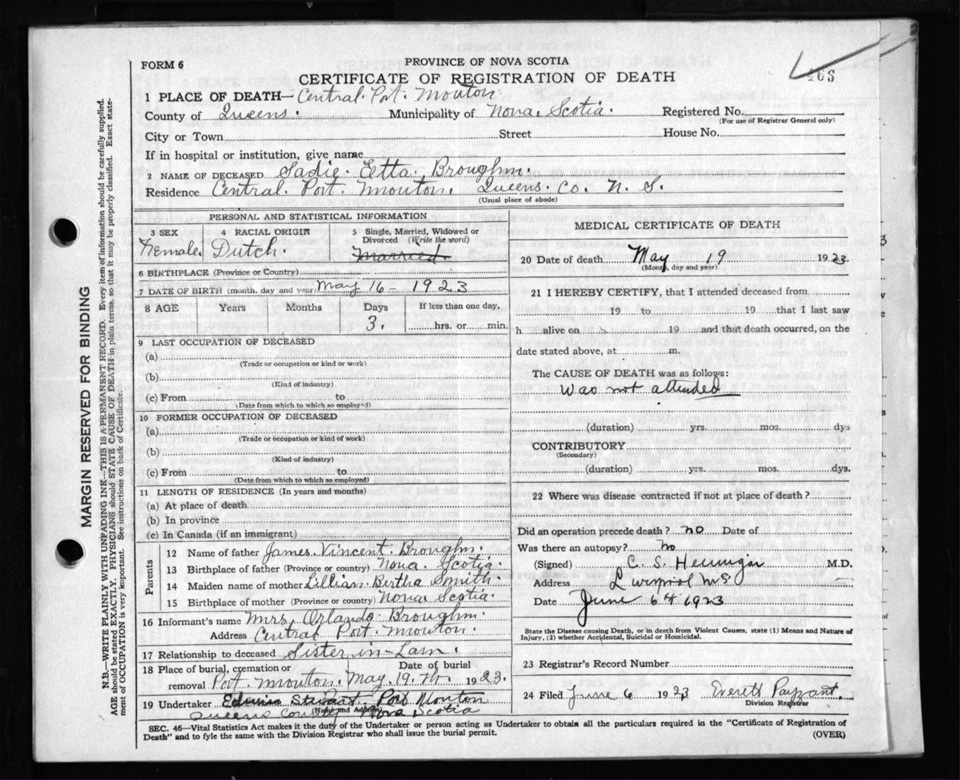 FORM 6
PROVINCE OF NOVA SCOTIA
CERTIFICATE OF REGISTRATION OF DEATH
1 PLACE OF DEATH—Central Port Mouton
County of Queens. Municipality of Nova Scotia. Registered No.
(For use of Registrar General only)
City or Town Street House No.
If in hospital or institution, give name
2 NAME OF DECEASED Sadie Etta Broughm.
Residence Central Port Mouton. Queens Co. N. S.
(Usual place of abode)
PERSONAL AND STATISTICAL INFORMATION
3 SEX 4 RACIAL ORIGIN 5 Single, Married, Widowed or Divorced (Write the word)
Female. Dutch. Married.
6 BIRTHPLACE (Province or Country)
7 DATE OF BIRTH (month, day and year) May 16 - 1923
8 AGE Years Months Days If less than one day,
3. hrs. or min.
9 LAST OCCUPATION OF DECEASED
(a)
(Trade or occupation or kind or work)
(b)
(Kind of industry)
(c) From to
(Date from which to which so employed)
10 FORMER OCCUPATION OF DECEASED
(a)
(Trade or occupation or kind of work)
(b)
(Kind of industry)
(c) From to
(Date from which to which so employed)
11 LENGTH OF RESIDENCE (In years and months)
(a) At place of death
(b) In province
(c) In Canada (if an immigrant)
Parents
12 Name of father James Vincent Broughm.
13 Birthplace of father (Province or country) Nova Scotia.
14 Maiden name of mother Lillian Bertha Smith.
15 Birthplace of mother (Province or country) Nova Scotia.
16 Informant's name Mrs. Orlando Broughm.
Address Central Port Mouton.
17 Relationship to deceased Sister in Law.
18 Place of burial, cremation or removal Date of burial
Port Mouton. May 19th. 1923.
19 Undertaker Edwin Stewart Port Mouton
(Name and Address)
Queens County Nova Scotia
MEDICAL CERTIFICATE OF DEATH
20 Date of death May 19 1923.
(Month, day and year)
21 I HEREBY CERTIFY, that I attended deceased from
19 to 19 that I last saw
h alive on 19 and that death occurred, on the
date stated above, at m.
The CAUSE OF DEATH was as follows:
Was not attended
(duration) yrs. mos. dys
CONTRIBUTORY
(Secondary)
(duration) yrs. mos. dys.
22 Where was disease contracted if not at place of death?
Did an operation precede death? no Date of
Was there an autopsy? No
(Signed) C. S. M.D.
Address N.S.
Date June 6th 1923
State the Disease causing Death, or in death from Violent Causes, state (1) Means and Nature of
Injury, (2) whether Accidental, Suicidal or Homicidal.
23 Registrar's Record Number
24 Filed June 6 1923 Everett Payzant.
Division Registrar
SEC. 46—Vital Statistics Act makes it the duty of the Undertaker or person acting as Undertaker to obtain all the particulars required in the "Certificate of Registration of
Death" and to fyle the same with the Division Registrar who shall issue the burial permit. (OVER)
MARGIN RESERVED FOR BINDING
N.B.—WRITE PLAINLY WITH UNFADING INK—THIS IS A PERMANENT RECORD. Every item of information should be carefully supplied.
AGE should be stated EXACTLY. PHYSICIANS should STATE CAUSE OF DEATH in plain terms, so that it may be properly classified. Exact state-
ment of OCCUPATION is very important. See instructions on back of Certificate.